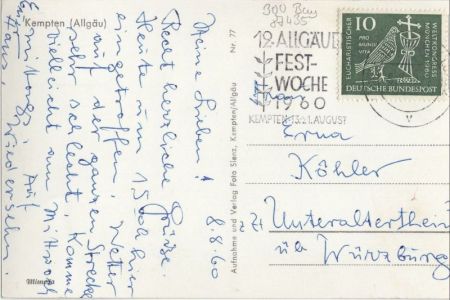 Kempten (Allgäu)
8.8.60
Meine Lieben!
Recht herzliche Grüße.
Heute um 15h hier
eingetroffen. Wetter
auf der ganzen Strecke
sehr schlecht. Komme
vielleicht am Mittwoch
Auf Wiedersehn.
Hans
Mimosa
Nr. 77
Aufnahme und Verlag Foto Sienz, Kempten/Allgäu
300 Bay
87435
12. ALLGÄUER
FEST-
WOCHE
1960
KEMPTEN 13.-21. AUGUST
10
PRO MUNDI VITA
EUCHARISTISCHER WELTKONGRESS
MÜNCHEN 1960
DEUTSCHE BUNDESPOST
Frau
Erna
Köhler
z Zt Unteraltertheim
üb Würzburg